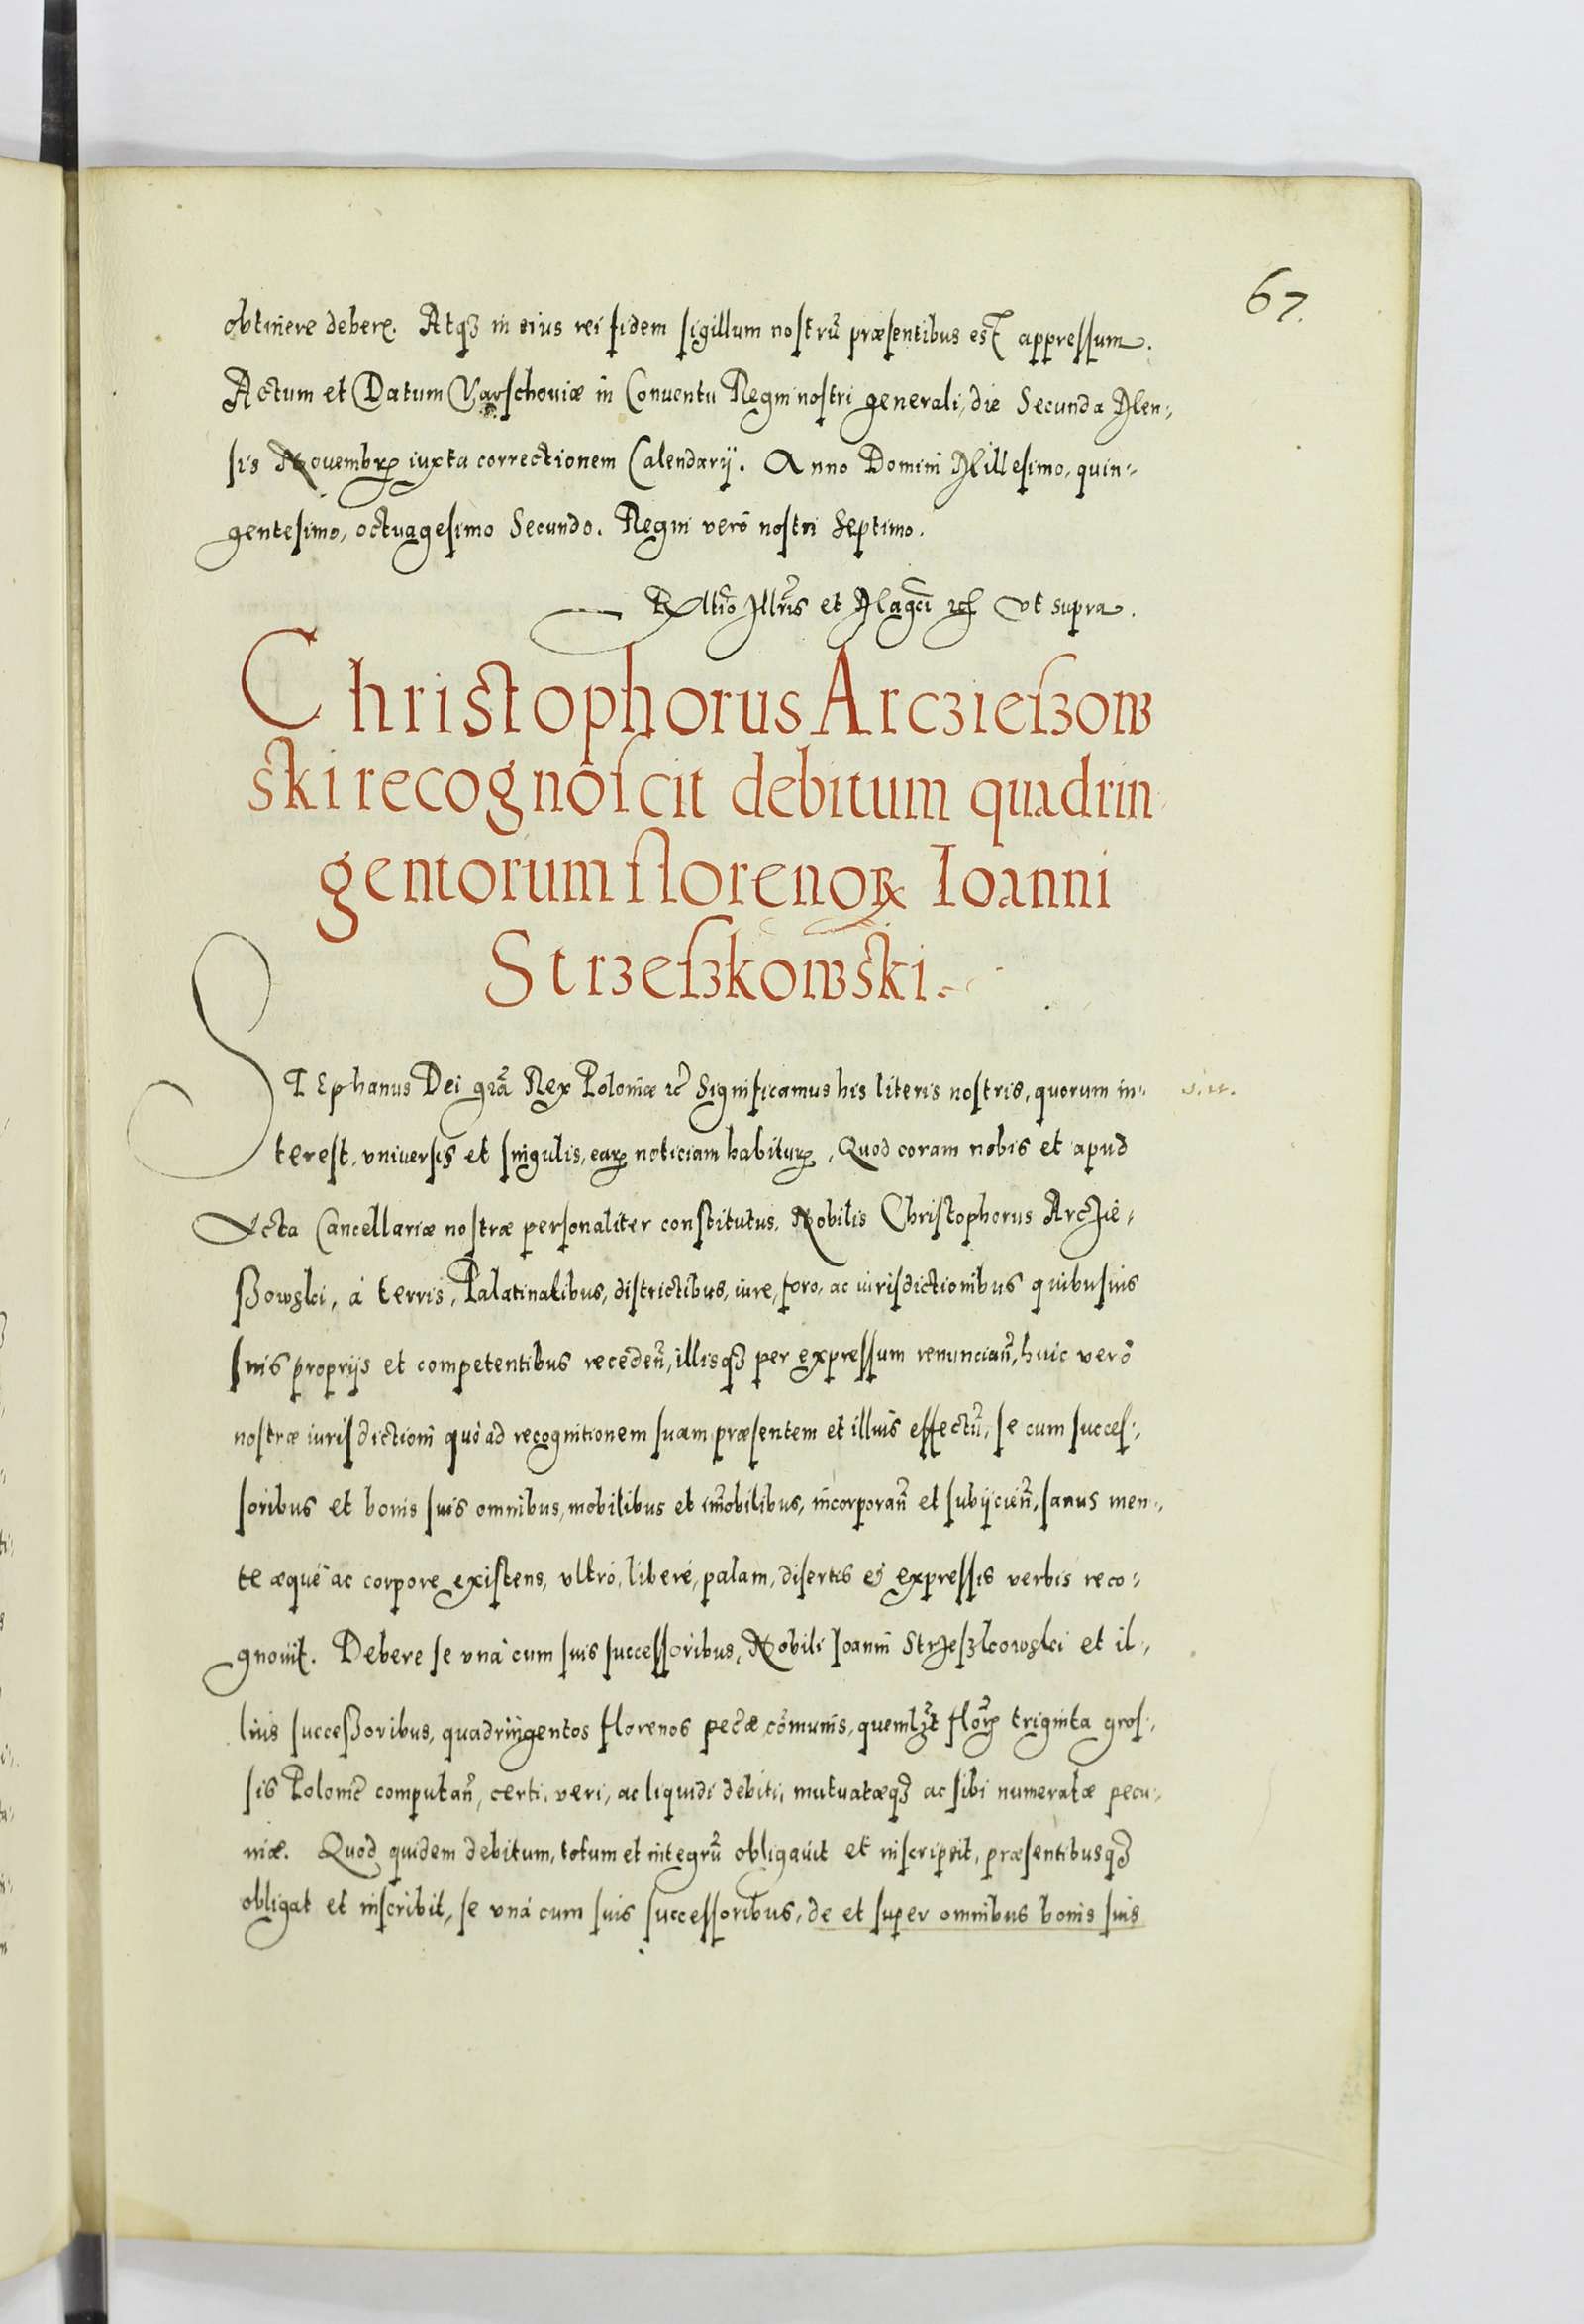 67.
obtinere debere. Atqꝫ in eius rei fidem sigillum nostrũ præsentibus est appressum.
Actum et Datum Varschouiæ in Conuentu Regni nostri generali, die Secunda Men-
sis Nouembrꝭ iuxta correctionem Calendarij. Anno Domini Millesimo, quin-
gentesimo, octuagesimo Secundo. Regni verò nostri Septimo.
et Magci ut supra.
Christophorus Arczieszow
ski recognoscit debitum quadrin
gentorum florenoꝝ Ioanni
Strzeszkowski.
STEphanus Dei grã Rex Poloniæ ꝛc̃ Significamus his literis nostris, quorum in-
terest, vniuersis et singulis, earꝫ noticiam habiturꝫ, Quod coram nobis et apud
Acta Cancellariæ nostræ personaliter constitutus, Nobilis Christophorus Arczie-
ßowski, à terris, Palatinatibus, districtibus, iure, foro, ac iurisdictionibus quibusuis
suis proprijs et competentibus recedeñ, illisqꝫ per expressum renunciañ, huic verò
nostræ iurisdictioni quò ad recognitionem suam præsentem et illius effectũ, se cum succes-
soribus et bonis suis omnibus, mobilibus et im̃obilibus, incorporañ et subijcieñ, sanus men-
te æquè ac corpore existens, vltrò, liberè, palam, disertis & expressis verbis reco-
gnouit. Debere se vnà cum suis successoribus, Nobili Ioanni Strzeszkowski et il-
lius succeßoribus, quadringentos florenos pec̃æ cõmunis, quemlꝫt flor̃ꝫ triginta gros-
sis Polonic̃ computañ, certi, veri, ac liquidi debiti, mutuatæqꝫ ac sibi numeratæ pecu-
niæ. Quod quidem debitum, totum et integrũ obligauit et inscripsit, præsentibusqꝫ
obligat et inscribit, se vnà cum suis successoribus, de et super omnibus bonis suis